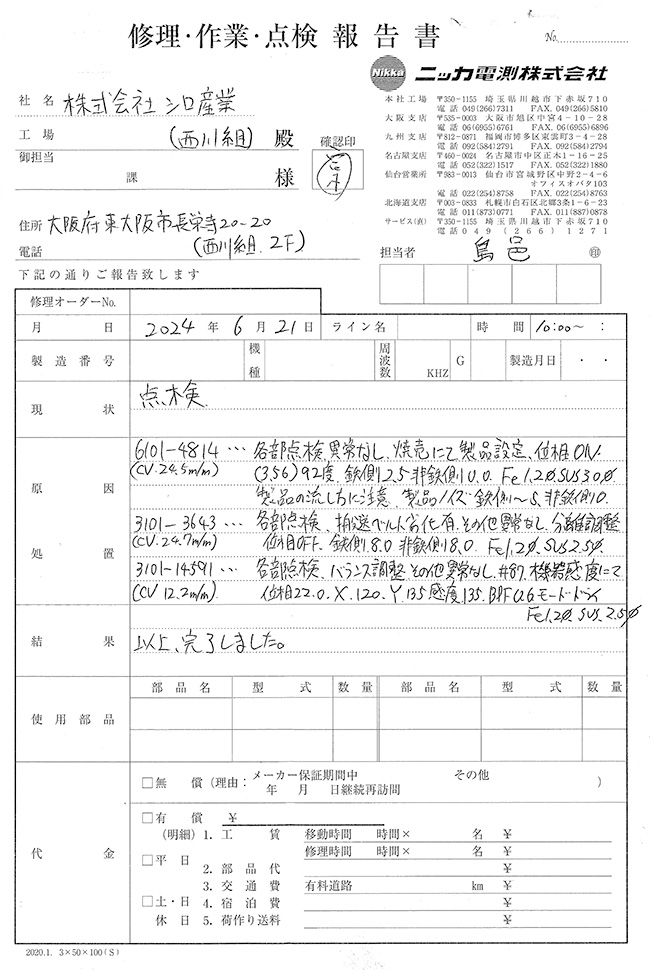 修理・作業・点検 報告書
No.
Nikka ニッカ電測株式会社
社名 株式会社 シロ産業
工場 (西川組) 殿 確認印
御担当
課 様
本社工場 〒350-1155 埼玉県川越市下赤坂710
電話 049(266)7311 FAX. 049(266)5810
大阪支店 〒535-0003 大阪市旭区中宮4-10-28
電話 06(6955)6761 FAX. 06(6955)6896
九州支店 〒812-0871 福岡市博多区東雲町3-4-28
電話 092(584)2791 FAX. 092(584)2794
名古屋支店 〒460-0024 名古屋市中区正木1-16-25
電話 052(322)1517 FAX. 052(322)1880
仙台営業所 〒983-0013 仙台市宮城野区中野2-4-6
オフィスオバタ103
電話 022(254)8758 FAX. 022(254)8763
北海道支店 〒003-0833 札幌市白石区北郷3条1-6-23
電話 011(873)0771 FAX. 011(887)0878
サービス(直) 〒350-1155 埼玉県川越市下赤坂710
電話 049(266)1271
住所 大阪府東大阪市長栄寺20-20
電話 (西川組 2F)
担当者 島邑 印
下記の通りご報告致します
修理オーダーNo.
月 日 2024年 6月 21日 ライン名 時間 10:00~ :
製造番号 機種 周波数 KHZ G 製造月日 ・ ・
現状 点検
原因
処置
6101-4814 … 各部点検、異常なし、焼売にて製品設定、位相ON
(CV.24.5m/m) (356)92度、鉄側2.5 非鉄側10.0. Fe1.2φ.SUS3.0φ.
製品の流し方に注意、製品ノイズ 鉄側~5、非鉄側10.
3101-3643 … 各部点検、搬送ベルト劣化有、その他異常なし、分離調整
(CV.24.7m/m) 位相OFF、鉄側8.0 非鉄側8.0. Fe1.2φ.SUS2.5φ.
3101-14591 … 各部点検、バランス調整、その他異常なし、#87. 機器感度にて
(CV 12.2m/m) 位相22.0. X.120. Y.135 感度135. BPF0.6 モードドライ
Fe1.2φ. SUS.2.5φ
結果 以上、完了しました。
使用部品 部品名 型式 数量 部品名 型式 数量
代金
□無償(理由:メーカー保証期間中 その他 )
年 月 日継続再訪問
□有償 ¥
(明細) 1. 工賃 移動時間 時間× 名 ¥
修理時間 時間× 名 ¥
□平日 2. 部品代 ¥
3. 交通費 有料道路 km ¥
□土・日 4. 宿泊費 ¥
休日 5. 荷作り送料 ¥
2020.1. 3×50×100(S)